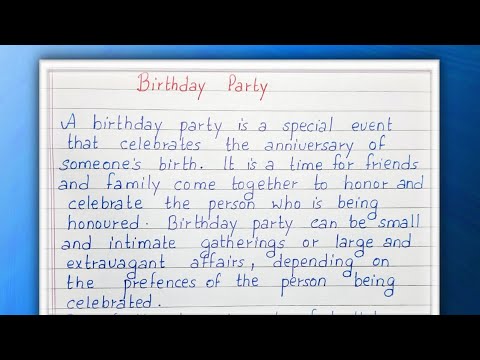 Birthday Party
A birthday party is a special event
that celebrates the anniversary of
someone's birth. It is a time for friends
and family come together to honor and
celebrate the person who is being
honoured. Birthday party can be small
and intimate gatherings or large and
extravagant affairs, depending on
the prefences of the person being
celebrated.